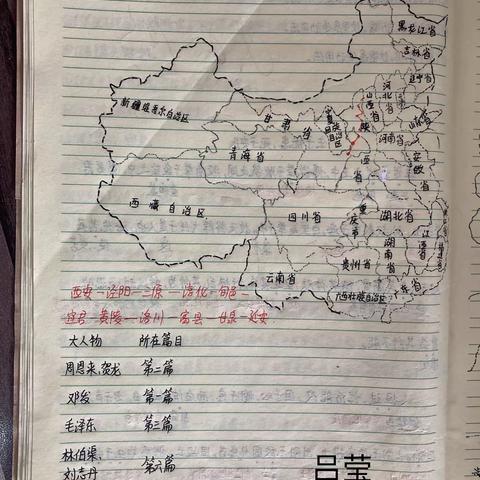 黑龙江省
吉林省
辽宁省
河北省
山西省
新疆维吾尔自治区
甘肃省
宁夏回族自治区
陕西省
山东省
河南省
青海省
安徽省
西藏自治区
四川省
重庆市
湖北省
湖南省
江西省
贵州省
云南省
广西壮族自治区
广东省
西安—泾阳—三原—淳化—旬邑—
宜君—黄陵—洛川—富县—甘泉—延安
大人物 所在篇目
周恩来、贺龙 第二篇
邓发 第一篇
毛泽东 第三篇
林伯渠、
刘志丹 第六篇
吕莹